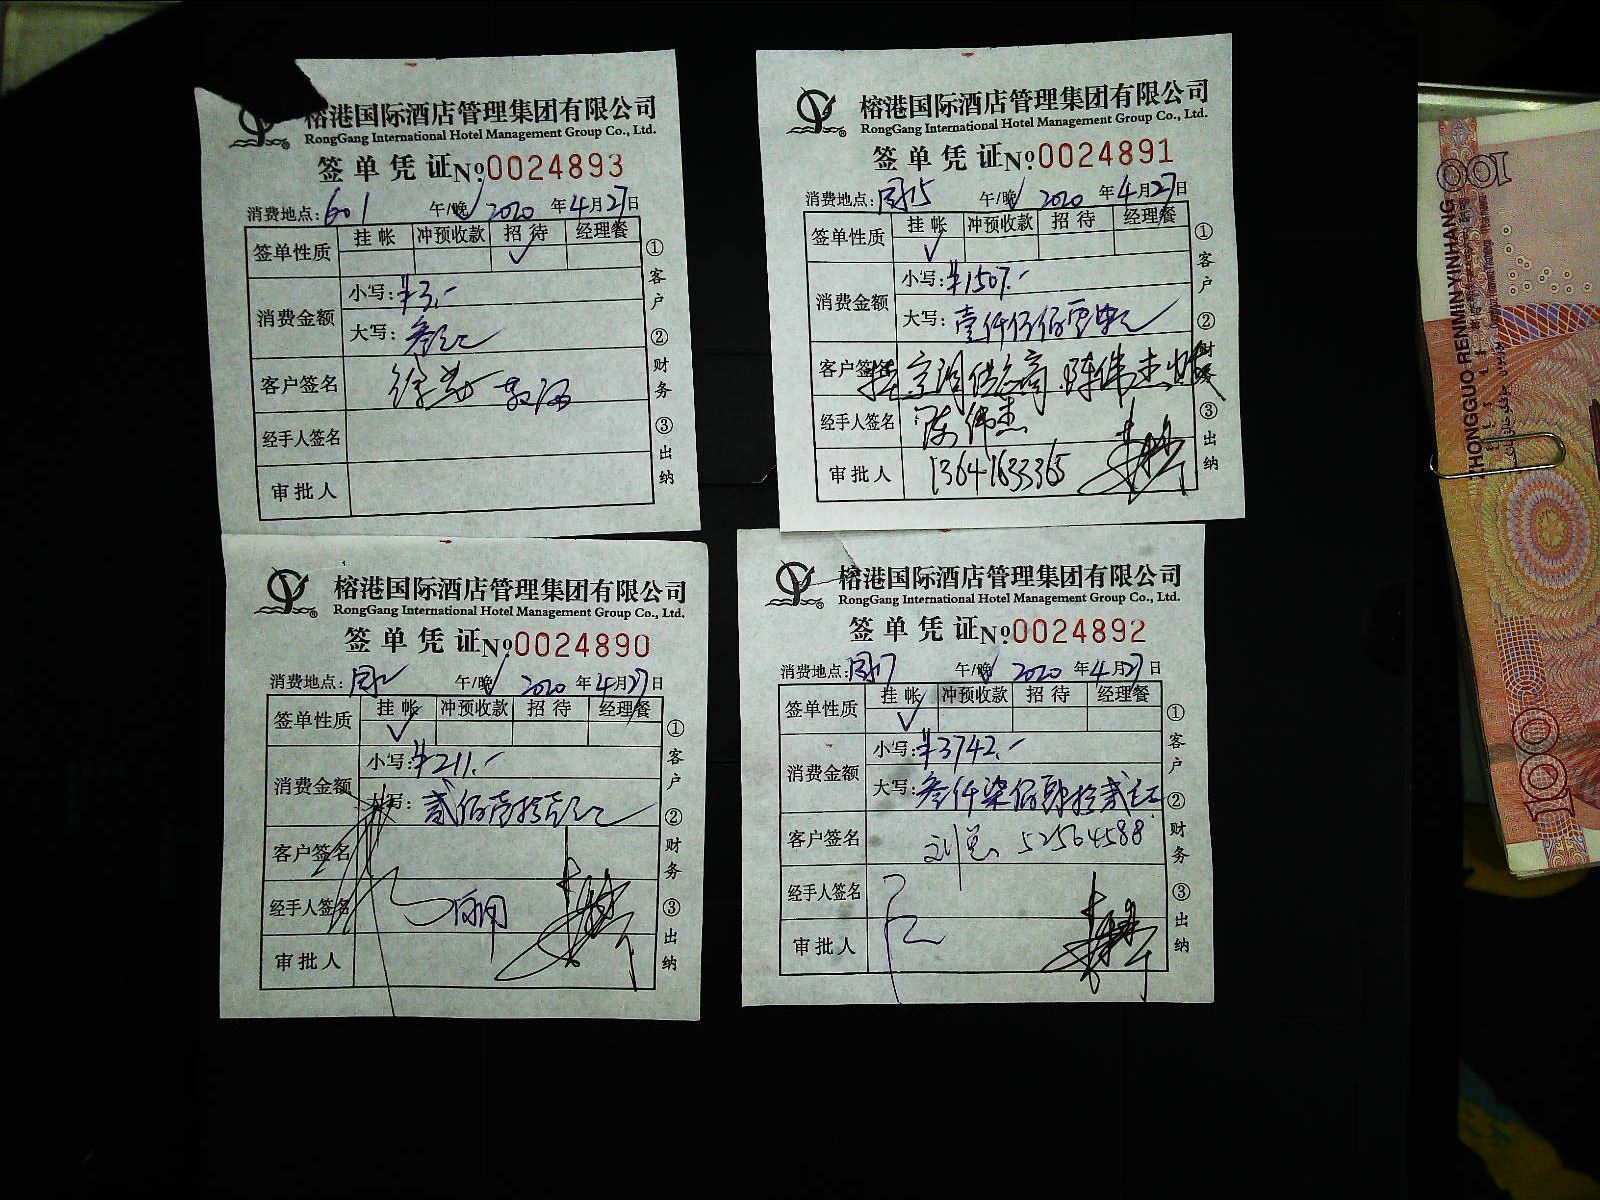 榕港国际酒店管理集团有限公司
RongGang International Hotel Management Group Co., Ltd.
签单凭证 No 0024893
消费地点: 601 午/晚√ 2020年4月27日
签单性质 挂帐 冲预收款 招待 经理餐
√
消费金额
小写: ¥3.-
大写: 叁元
客户签名
经手人签名
审批人
①客户 ②财务 ③出纳
榕港国际酒店管理集团有限公司
RongGang International Hotel Management Group Co., Ltd.
签单凭证 No 0024891
消费地点: 午/晚√ 2020年4月27日
签单性质 挂帐 冲预收款 招待 经理餐
√
消费金额
小写: ¥1507.-
大写: 壹仟伍佰零柒元
客户签名 挂空调供应商.陈伟杰账
经手人签名 陈伟杰
审批人 13641633365
①客户 ②财务 ③出纳
榕港国际酒店管理集团有限公司
RongGang International Hotel Management Group Co., Ltd.
签单凭证 No 0024890
消费地点: 午/晚√ 2020年4月27日
签单性质 挂帐 冲预收款 招待 经理餐
√
消费金额
小写: ¥211.-
大写: 贰佰壹拾壹元
客户签名
经手人签名
审批人
①客户 ②财务 ③出纳
榕港国际酒店管理集团有限公司
RongGang International Hotel Management Group Co., Ltd.
签单凭证 No 0024892
消费地点: 午/晚√ 2020年4月27日
签单性质 挂帐 冲预收款 招待 经理餐
√
消费金额
小写: ¥3742.-
大写: 叁仟柒佰肆拾贰元
客户签名 刘总 52564588
经手人签名
审批人
①客户 ②财务 ③出纳
100
ZHONGGUO RENMIN YINHANG
100